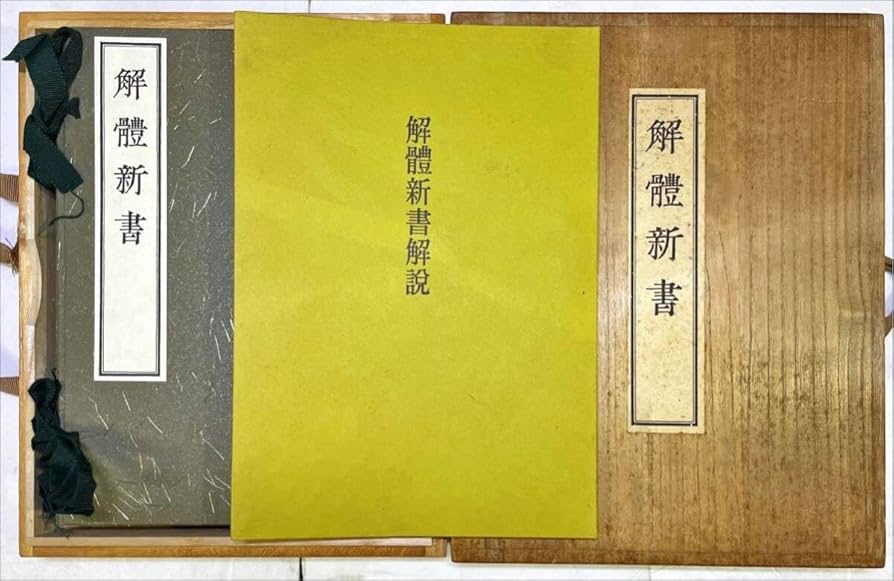 解體新書
解體新書解說
解體新書